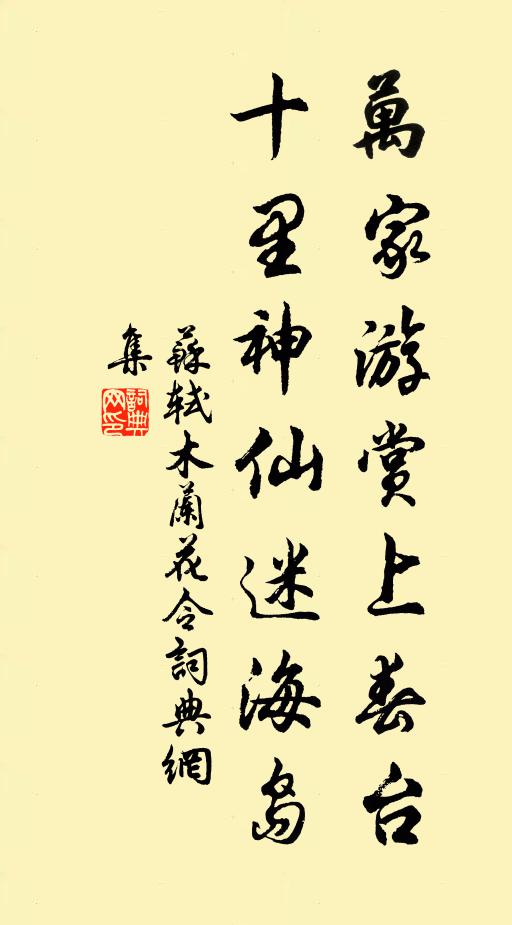 萬家游賞上春台
十里神仙迷海島
蘇軾木蘭花令詞典網
集
詞典
网印